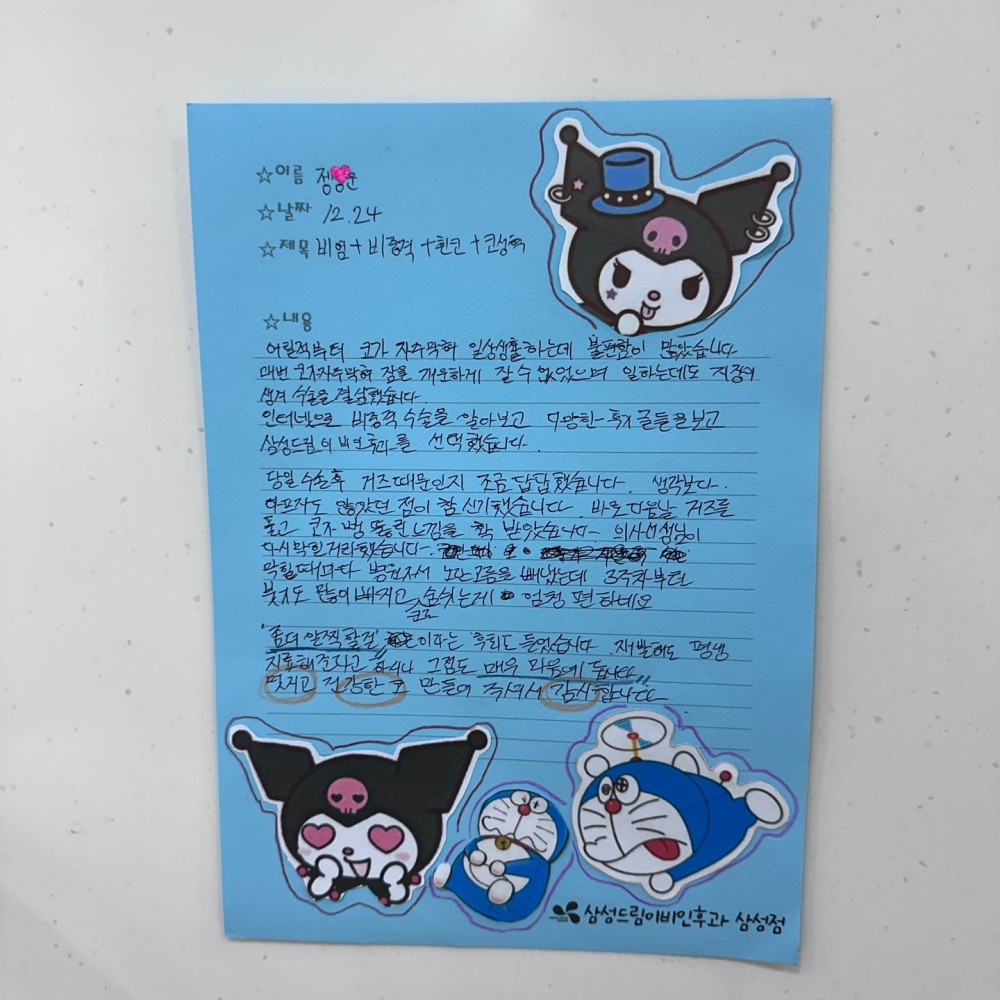 ☆이름 정 운
☆날짜 12.24
☆제목 비염+비중격+휜코+코성형
☆내용
어릴적부터 코가 자주막혀 일상생활하는데 불편함이 많았습니다
매번 코가자주막혀 잠을 개운하게 잘수 없었으며 일하는데도 지장이
생겨 수술을 결심했습니다.
인터넷으로 비중격 수술을 알아보고 후기 글들을보고
삼성드림이비인후과를 선택했습니다.
당일 수술후 거즈때문인지 조금 답답했습니다. 생각보다.
아프지도 않았던 점이 참 신기했습니다. 바로 다음날 거즈를
풀고 코가 뻥 뚫린느낌을 확 받았습니다 의사선생님이
다시막힐거라했습니다.
막힐때마다 병원가서 노란고름을 빼냈는데 3주차부터
붓기도 많이빠지고 숨쉬는게 엄청 편하네요
코로
'좀더 일찍할걸' 이라는 후회도 들었습니다. 재발해도 평생
치료해준다고 하시니 그점도 매우 마음에 듭니다
멋지고 건강한 코 만들어 주셔서 감사합니다
삼성드림이비인후과 삼성점